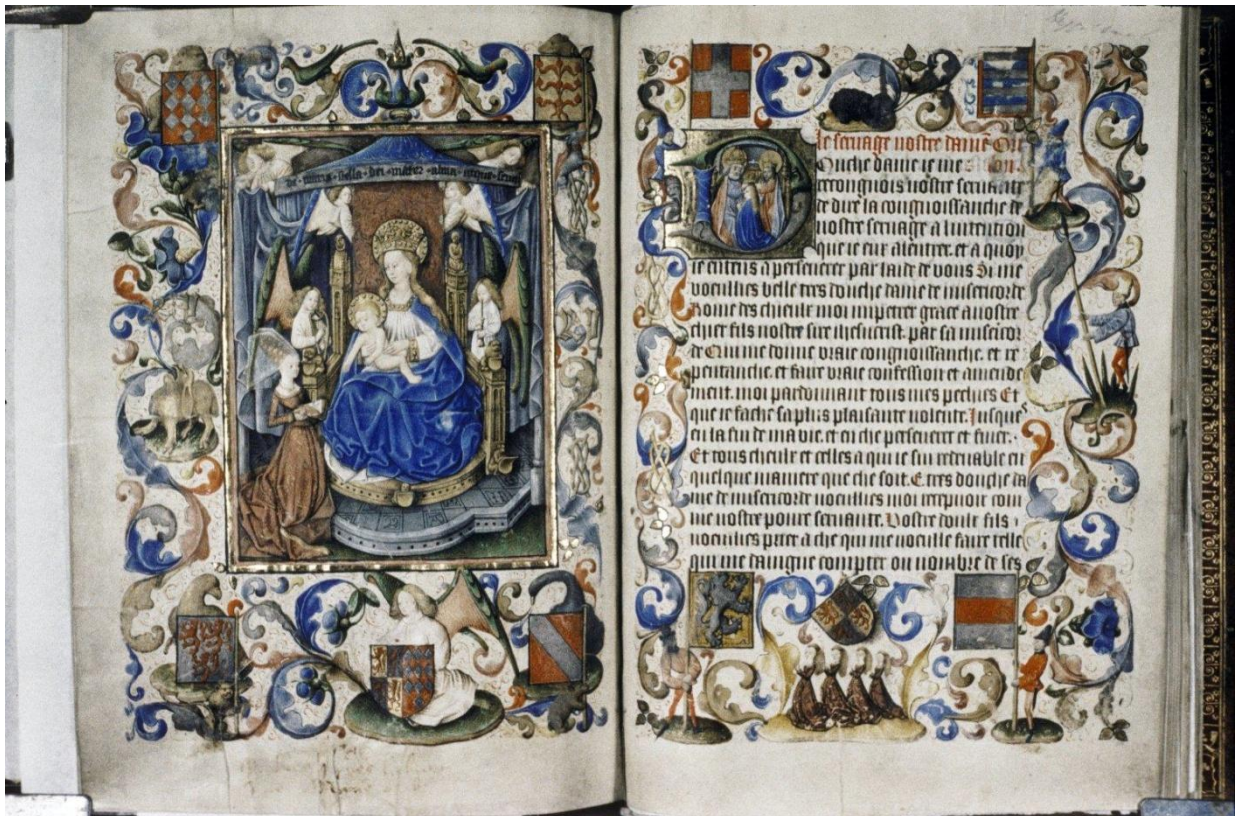 de · maris · stella · dei · mater · alma · atque · semp
le seruage nostre dame On
Ouche dame ie me
recongnois vostre seruante
de dire la congnoissanche de
vostre seruage a lintention
que ie eur alentree. et a quoy
ie entens a perseuerer par laide de vous Si me
voeillies belle tres douche dame de misericorde
Rome des chieulx moi impetrer grace a vostre
chier fils nostre sire ihesucrist. par sa misericor
de Qui me doinne vraie congnoissanche. et re
pentanche. et faire vraie confession et amende
ment. moi pardonnant tous mes pechies Et
que ie fache sa plus plaisante volente. Jusques
en la fin de ma vie. et en che perseuerer et finer.
Et tous cheulx et celles a qui ie sui redeuable en
quelque maniere que che soit. E tres douche da
me de misericorde voeillies moi recepuoir com
me vostre poure seruante. Vostre doulx fils
voeillies prier a che qui me voeille faire telle
qui me daingne compter ou nombre de ses